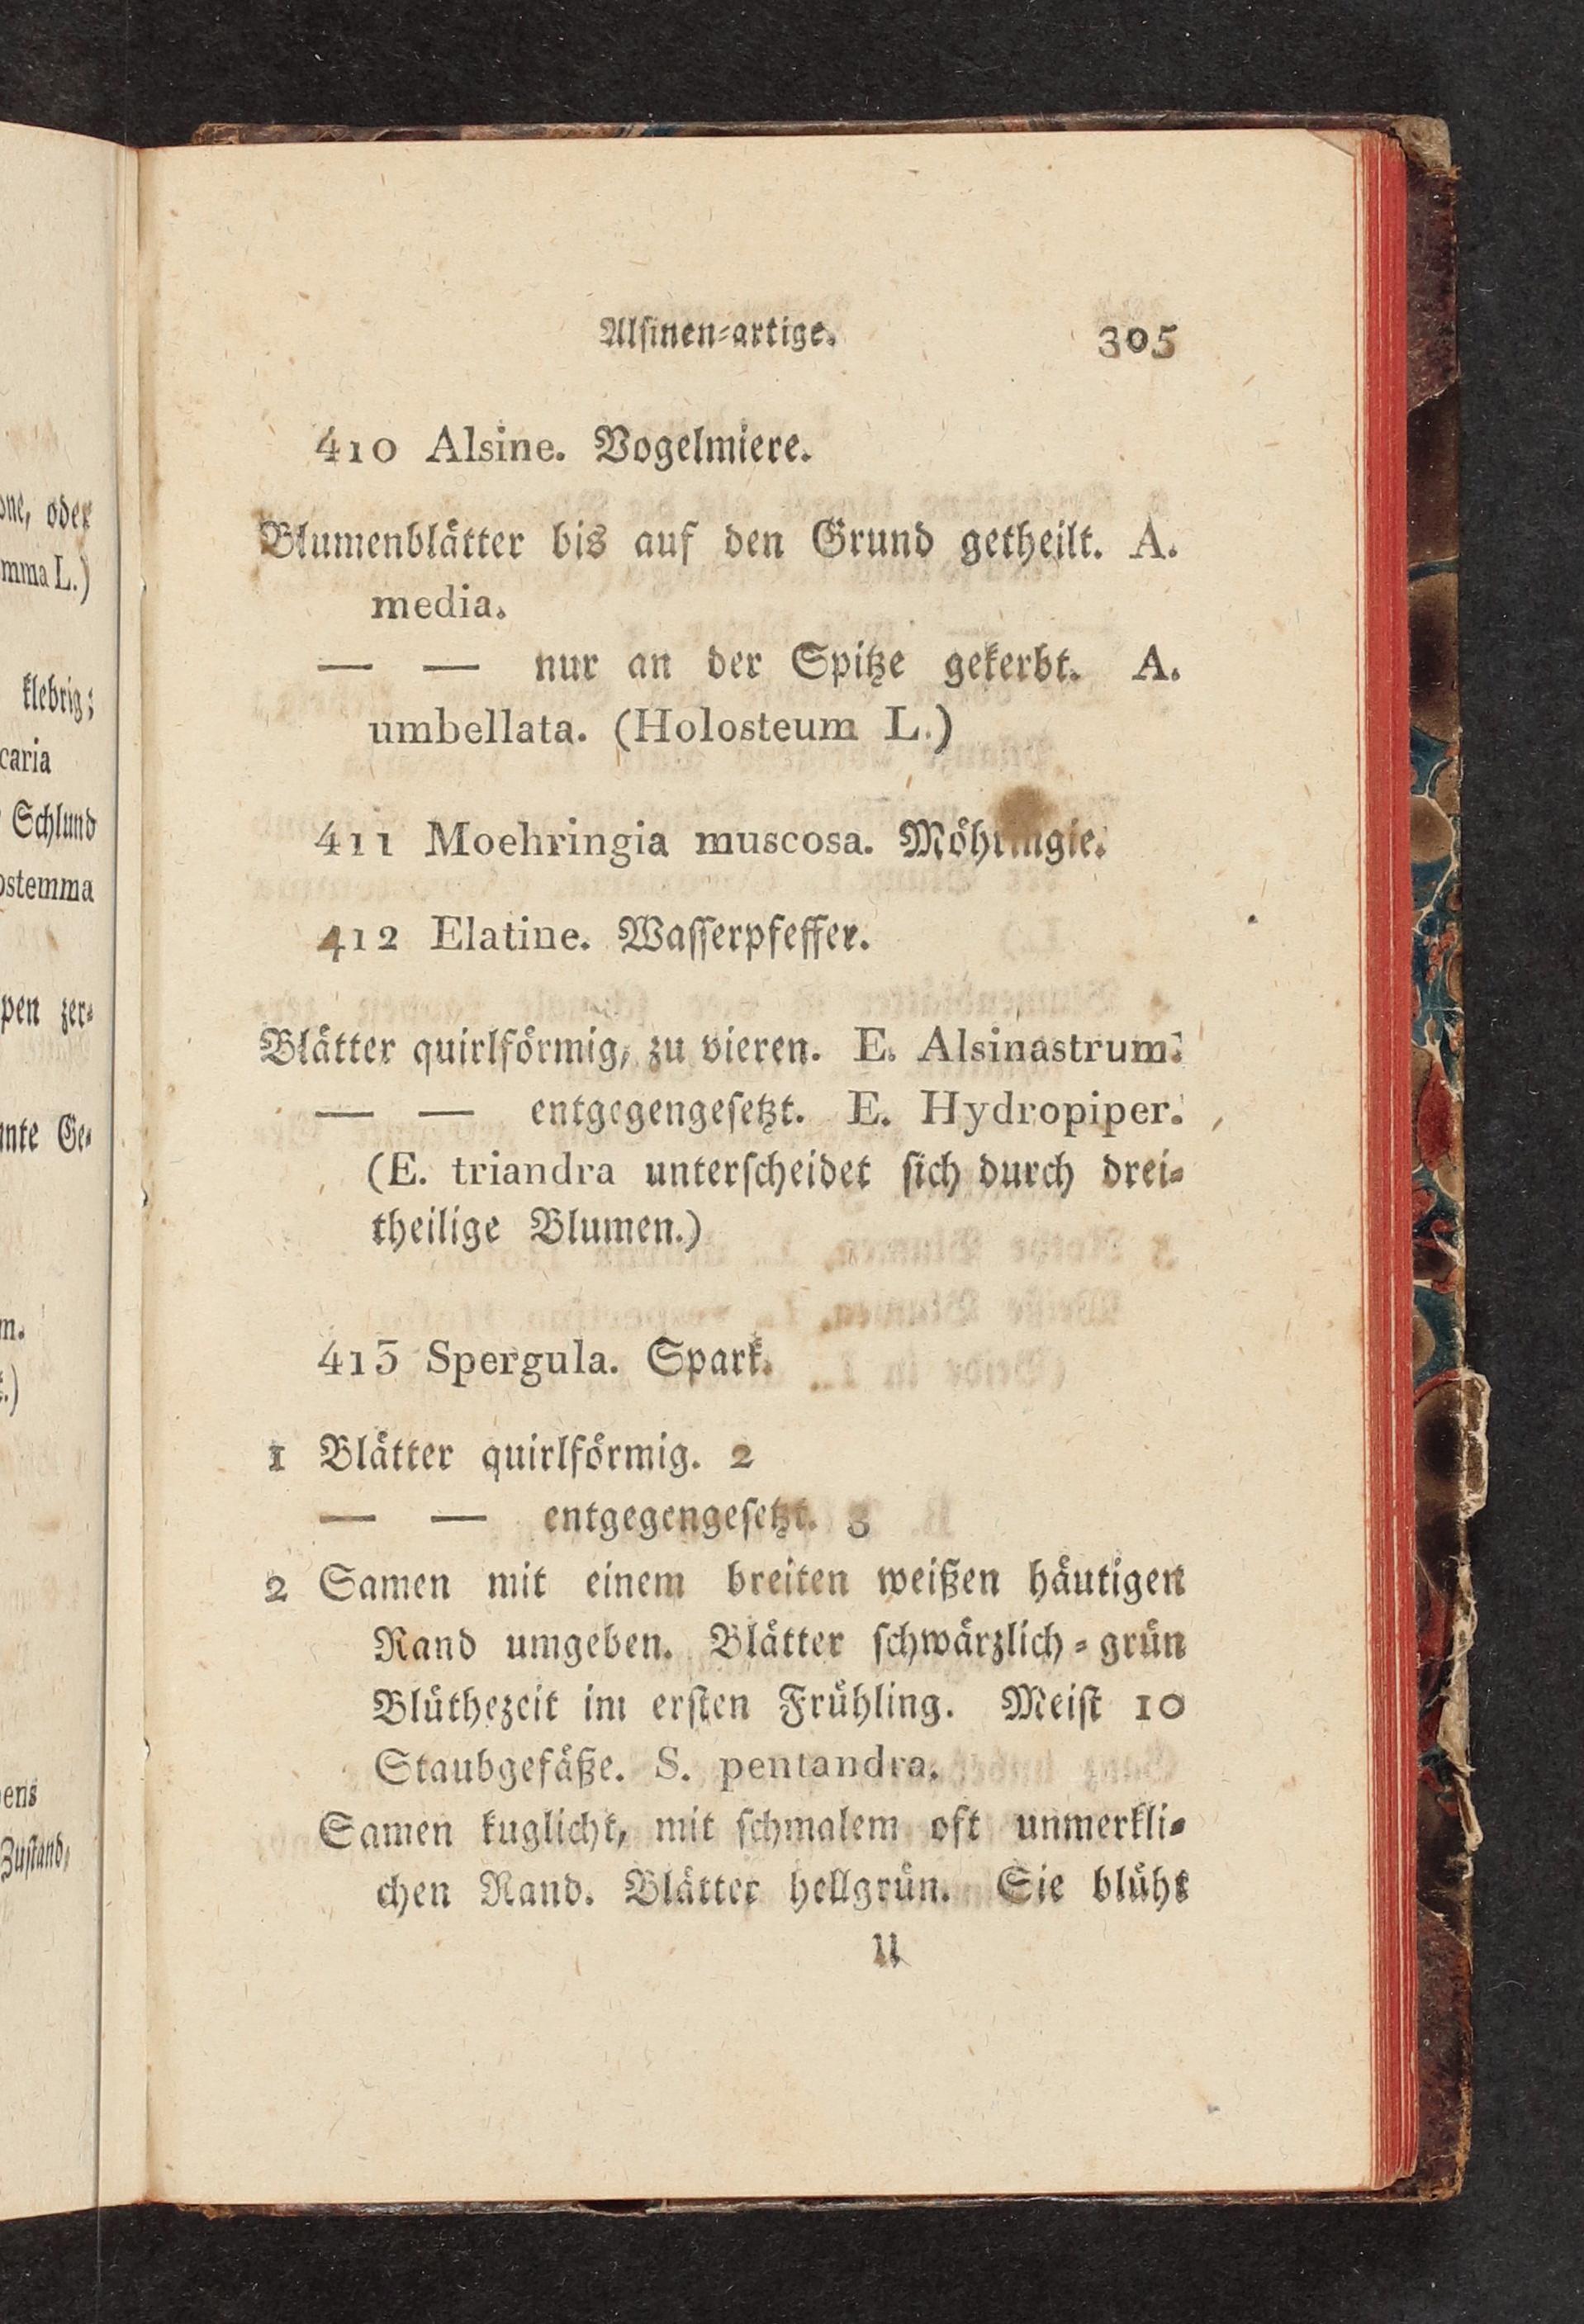 one, oder
mma L.)
klebrig;
caria
Schlund
ostemma
pen zer-
nnte Ge-
m.
Zustand,
Alsinen-artige. 305
410 Alsine. Vogelmiere.
Blumenblåtter bis auf den Grund getheilt. A.
media.
— — nur an der Spitze gekerbt. A.
umbellata. (Holosteum L.)
411 Moehringia muscosa. Möhringie.
412 Elatine. Wasserpfeffer.
Blätter quirlförmig, zu vieren. E. Alsinastrum.
— — entgegengesetzt. E. Hydropiper.
(E. triandra unterscheidet sich durch drei-
theilige Blumen.)
413 Spergula. Spark.
1 Blätter quirlförmig. 2
— — entgegengesetzt. 3
2 Samen mit einem breiten weißen häutigen
Rand umgeben. Blätter schwärzlich-grün
Blüthezeit im ersten Frühling. Meist 10
Staubgefäße. S. pentandra.
Samen kuglicht, mit schmalem oft unmerkli-
chen Rand. Blätter hellgrün. Sie blüht
U